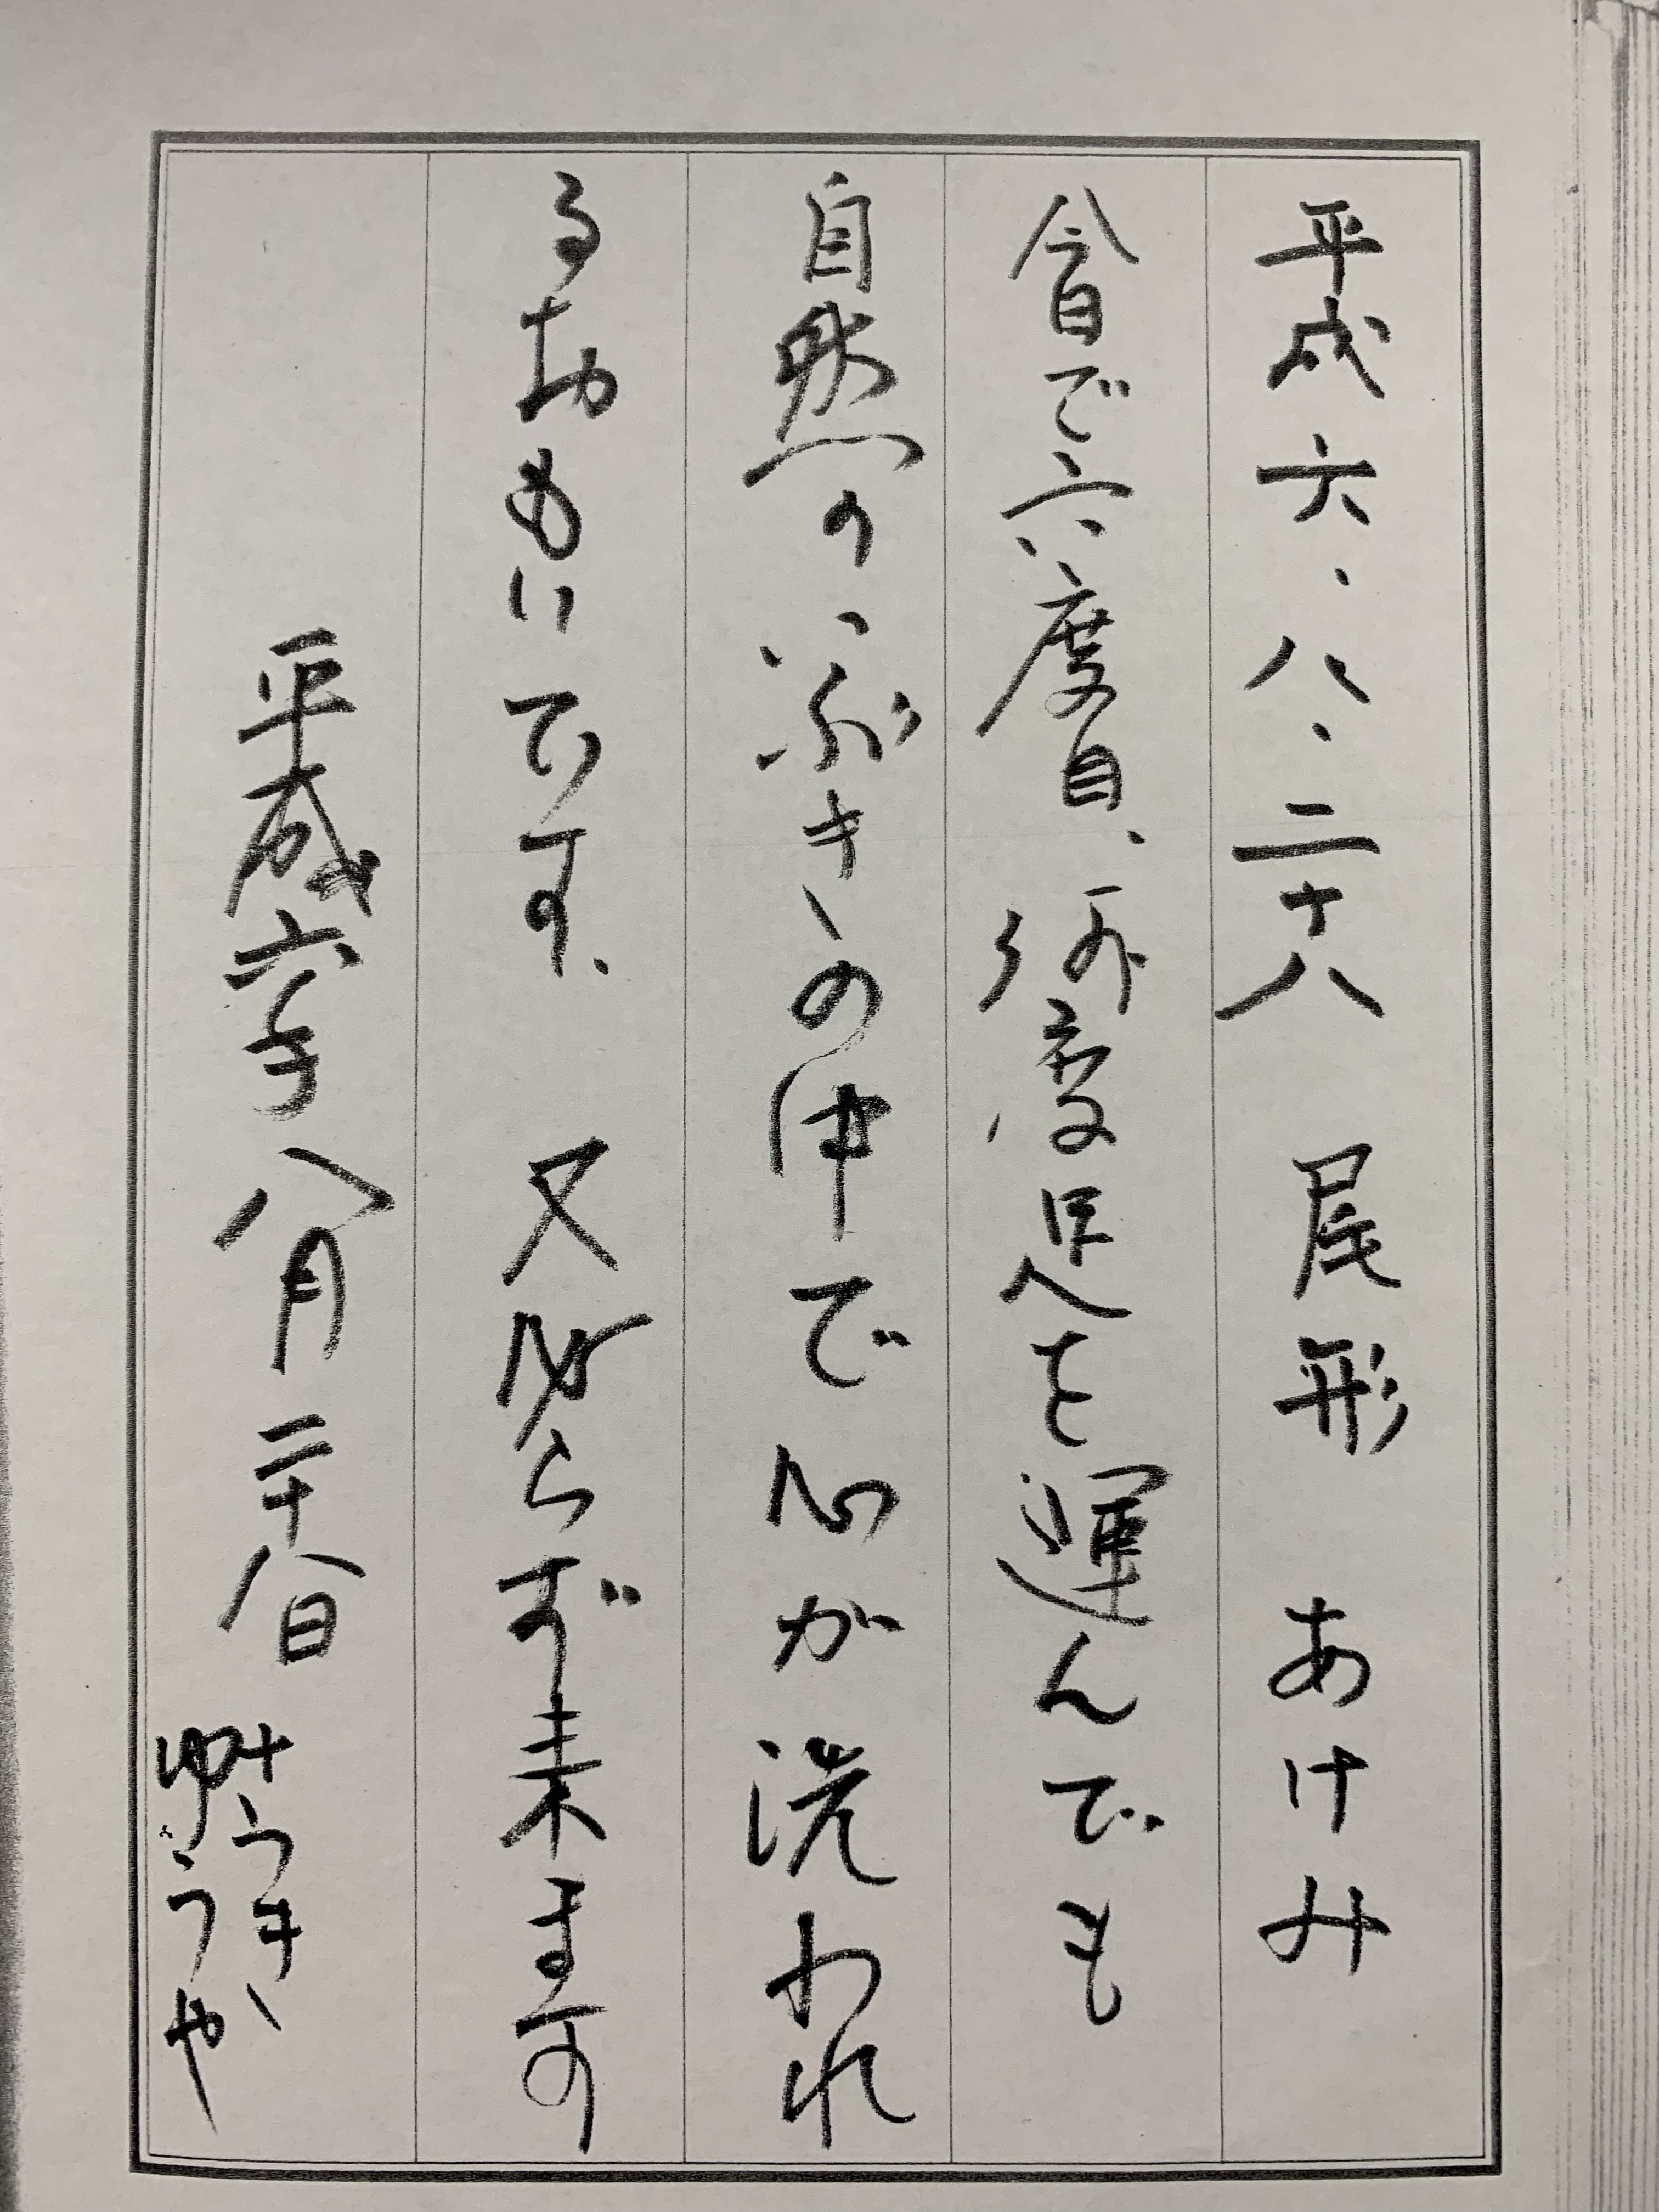 平成六.八.二十八 尾形 あけみ
今日で六度目、何度足を運んでも
自然のいぶきの中で心が洗われ
るおもいです、 又必らず来ます
平成六年八月二十八日
みうき
ゆうや